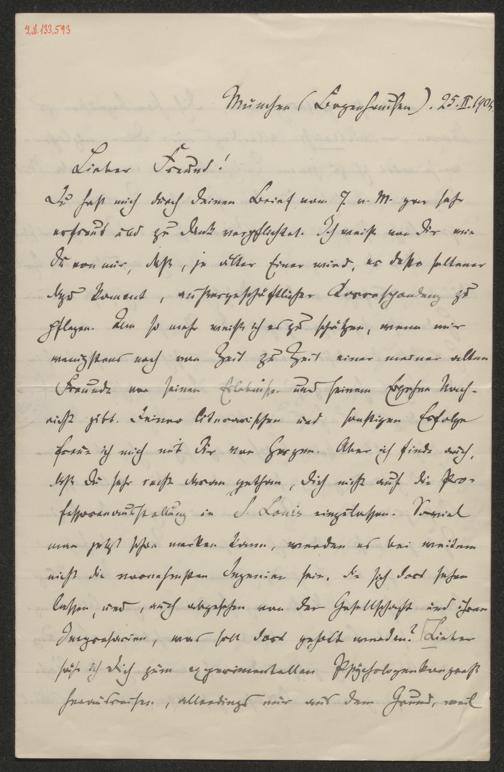 München (Bogenhausen). 25.II.1904
Lieber Freund!
Du hast mich durch Deinen Brief vom 7. v. M. gar sehr
erfreut und zu Dank verpflichtet. Ich weiß von Dir wie
Du von mir, daß, je älter Einer wird, es desto seltener
dazu kommt, außergeschäftlicher Korrespondenz zu
pflegen. Um so mehr weiß ich es zu schätzen, wenn mir
wenigstens noch von Zeit zu Zeit einer meiner alten
Freunde von seinen Erlebnissen und seinem Ergehen Nach-
richt gibt. Deiner literarischen und sonstigen Erfolge
freue ich mich mit Dir von Herzen. Aber ich finde auch,
daß Du sehr recht daran gethan, Dich nicht auf die Pro-
fessorenausstellung in S. Louis einzulassen. Soviel
man jetzt schon merken kann, werden es bei weitem
nicht die vornehmsten Ingenien sein, die sich dort sehen
lassen, und, auch abgesehen von der Gesellschaft und ihren
Impresarien, was soll dort geholt werden? Lieber
sähe ich Dich zum experimentellen Psychologenkongreß
herausreisen, allerdings nur aus dem Grund, weil